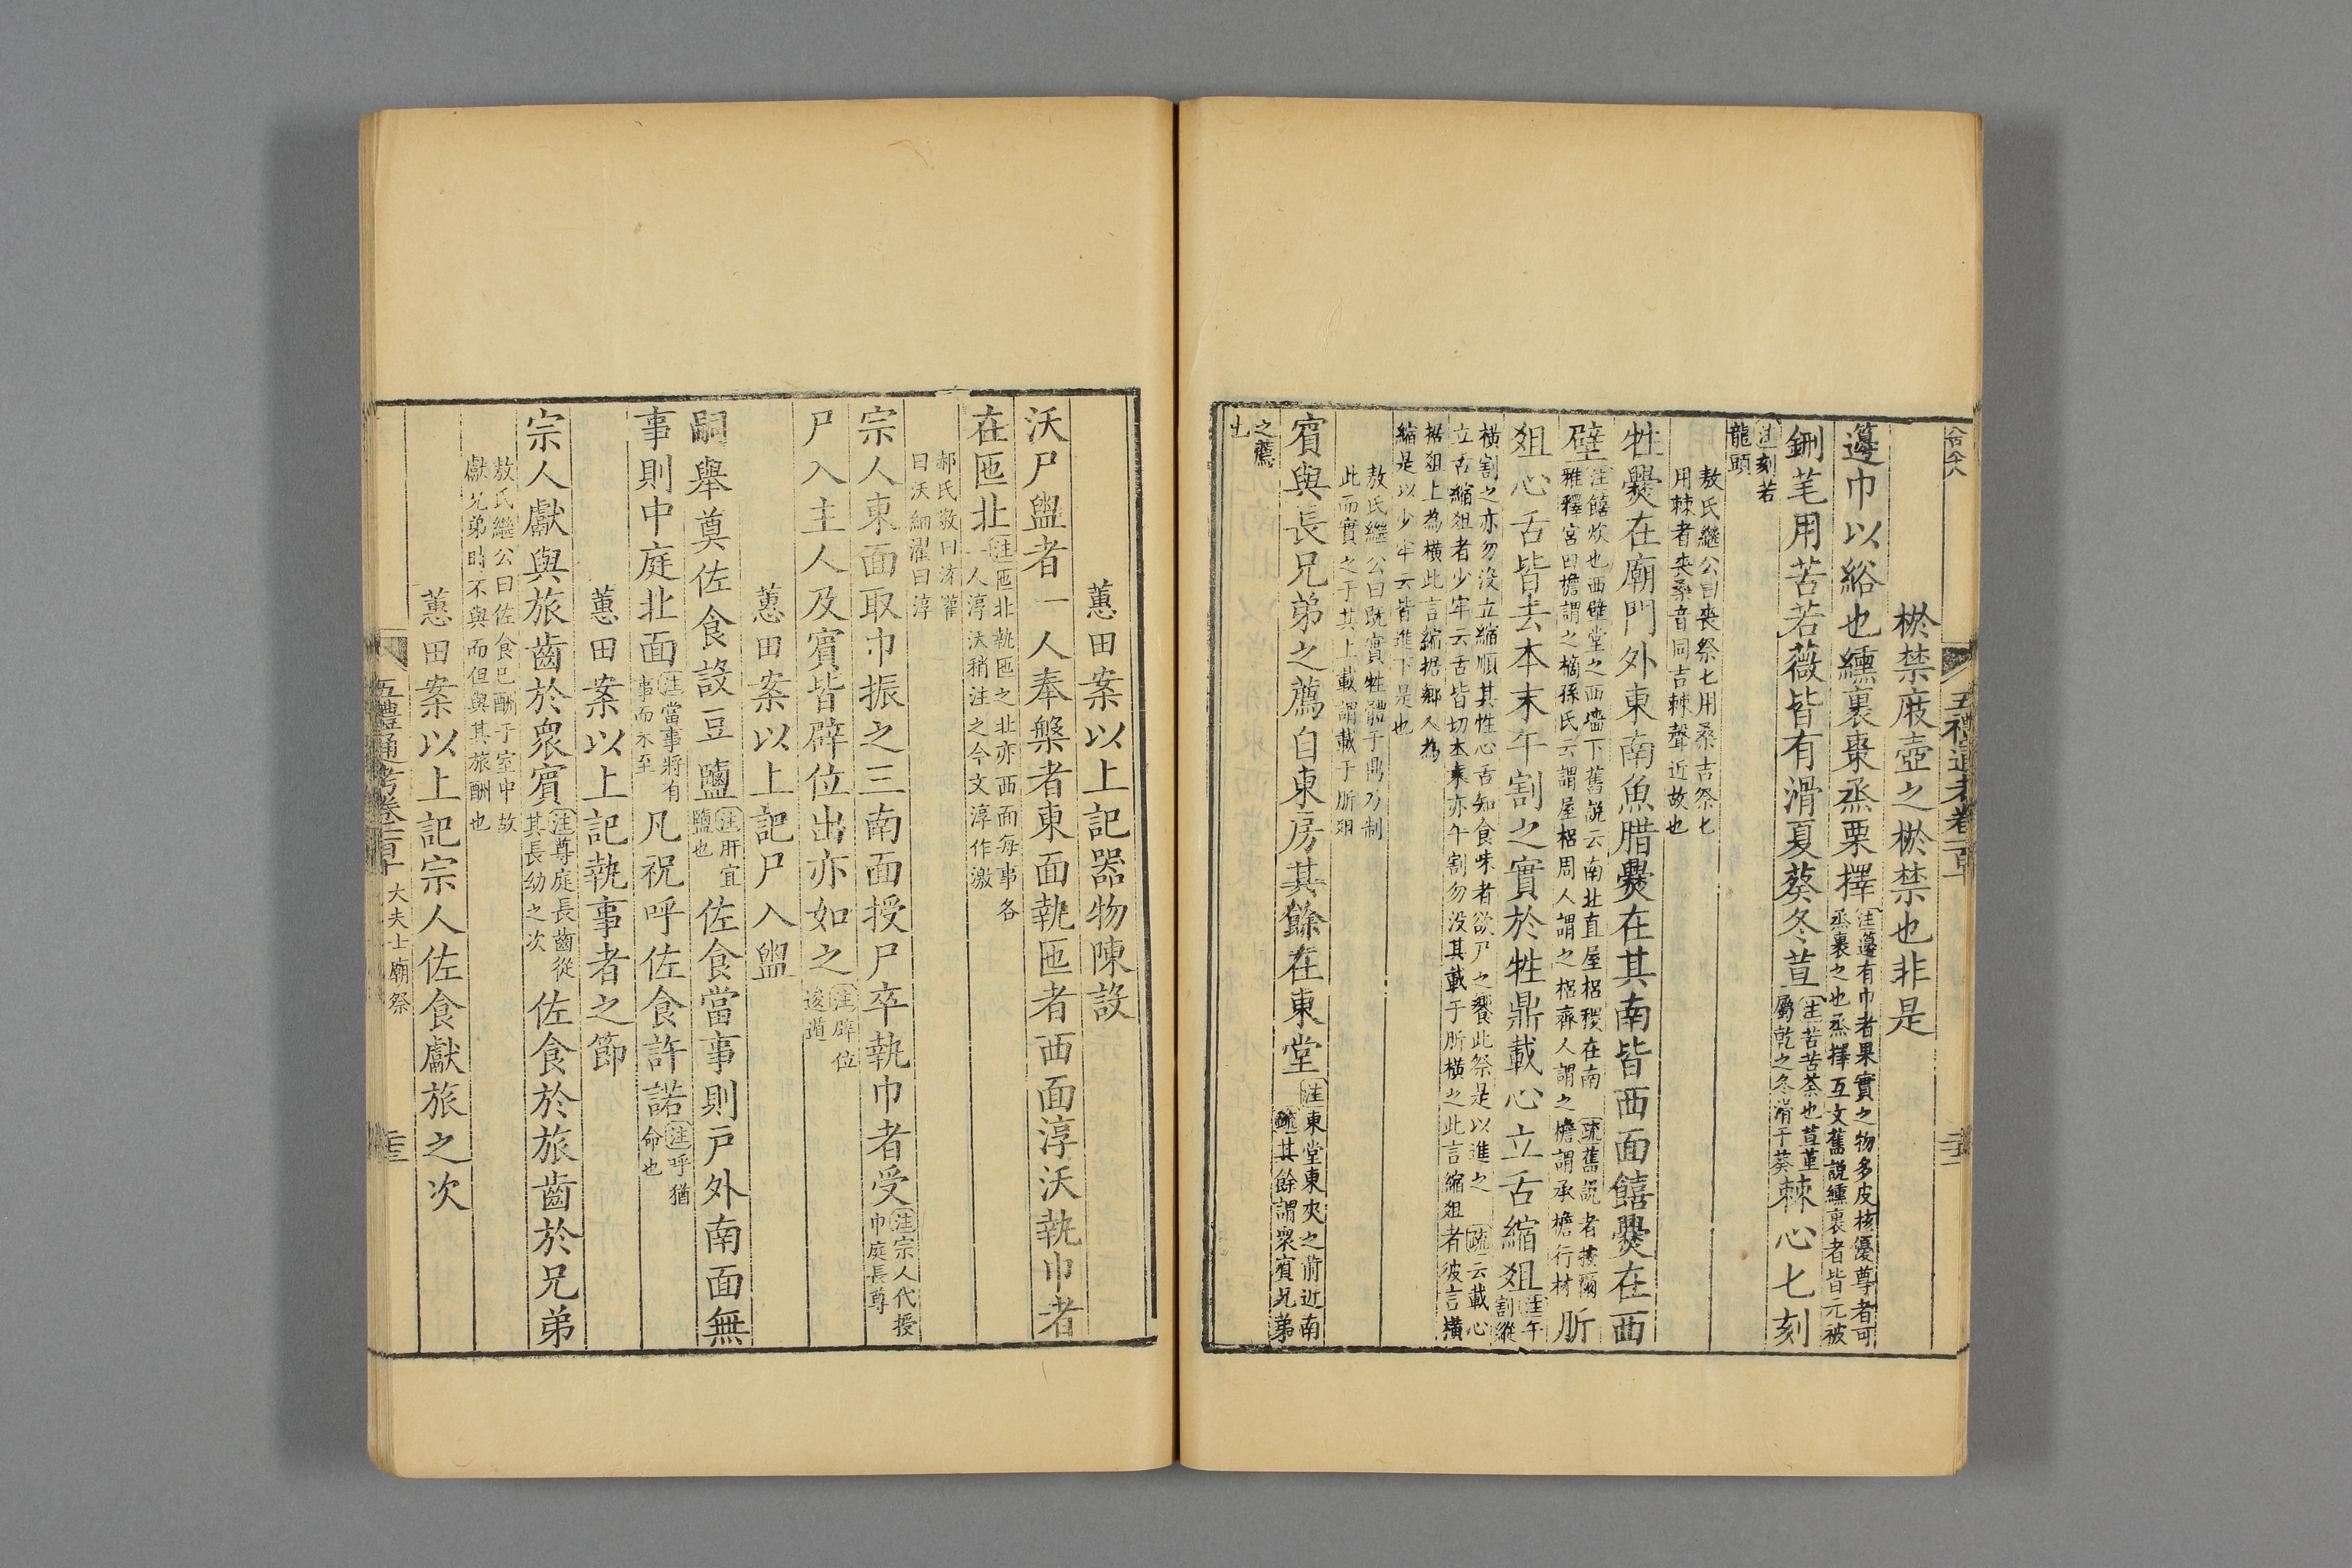 棜禁庪壺之棜禁也非是
籩巾以綌也纁裏棗烝栗擇
注籩有巾者果實之物多皮核優尊者可
烝裹之也烝擇互文舊說纁裏者皆元被
鉶芼用苦若薇皆有滑夏葵冬荁
注苦苦荼也荁堇
屬乾之冬滑于葵
棘心匕刻
注刻若
龍頭
敖氏繼公曰喪祭匕用桑吉祭匕
用棘者喪桑音同吉棘聲近故也
牲爨在廟門外東南魚腊爨在其南皆西面饎爨在西
壁
注饎炊也西壁堂之西墻下舊說云南北直屋梠稷在南
疏舊說者按爾
雅釋宮曰檐謂之樀孫氏云謂屋梠周人謂之梠齊人謂之檐謂承檐行材
肵
俎心舌皆去本末午割之實於牲鼎載心立舌縮俎
注午
割從
橫割之亦勿没立縮順其性心舌知食味者欲尸之饗此祭是以進之
疏云載心
立舌縮俎者少牢云舌皆切本末亦午割勿没其載于肵橫之此言縮俎者彼言橫
据俎上為橫此言縮据鄉人為
縮是以少牢云皆進下是也
敖氏繼公曰既實牲體于鼎乃制
此而實之于其上載謂載于肵俎
賓與長兄弟之薦自東房其餘在東堂
注東堂東夾之前近南
疏其餘謂眾賓兄弟
之薦
也
五禮通考卷一百十
蕙田案以上記器物陳設
沃尸盥者一人奉槃者東面執匜者西面淳沃執巾者
在匜北
注匜北執匜之北亦西面每事各
一人淳沃稍注之今文淳作激
郝氏敬曰沃灌
曰沃細濯曰淳
宗人東面取巾振之三南面授尸卒執巾者受
注宗人代授
巾庭長尊
尸入主人及賓皆辟位出亦如之
注辟位
逡遁
蕙田案以上記尸入盥
嗣舉奠佐食設豆鹽
注肝宜
鹽也
佐食當事則戶外南面無
事則中庭北面
注當事將有
事而未至
凡祝呼佐食許諾
注呼猶
命也
蕙田案以上記執事者之節
宗人獻與旅齒於眾賓
注尊庭長齒從
其長幼之次
佐食於旅齒於兄弟
敖氏繼公曰佐食已酬于室中故
獻兄弟時不與而但與其旅酬也
蕙田案以上記宗人佐食獻旅之次
五禮通考卷一百十
大夫士廟祭